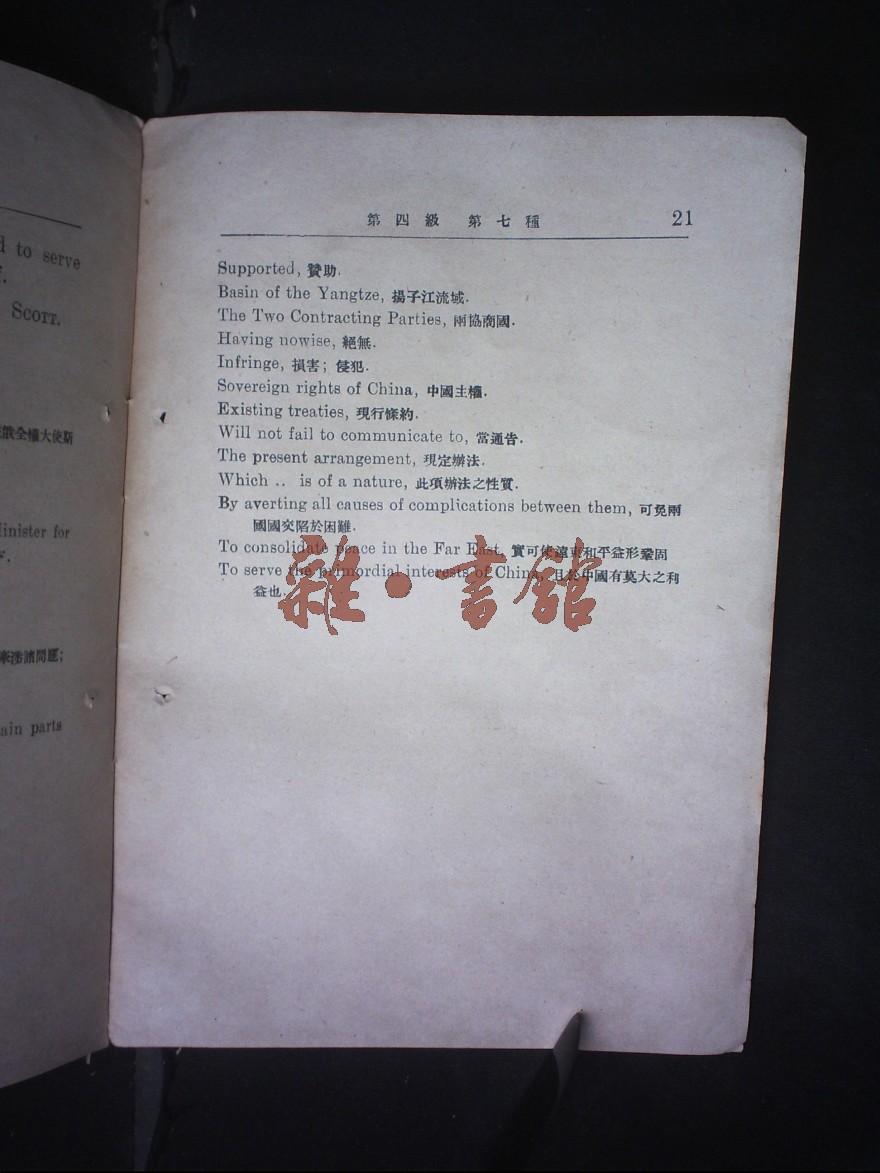 d to serve
SCOTT.
俄全權大使斯
Minister for
諸問題;
ain parts
第四級 第七種 21
Supported, 贊助.
Basin of the Yangtze, 揚子江流域.
The Two Contracting Parties, 兩協商國.
Having nowise, 絕無.
Infringe, 損害; 侵犯.
Sovereign rights of China, 中國主權.
Existing treaties, 現行條約.
Will not fail to communicate to, 當通告.
The present arrangement, 現定辦法.
Which .. is of a nature, 此項辦法之性質.
By averting all causes of complications between them, 可免兩
國國交陷於困難.
To consolidate peace in the Far East, 實可使遠東和平益形鞏固
To serve the primordial interests of China, 且於中國有莫大之利
益也.
雜·書館